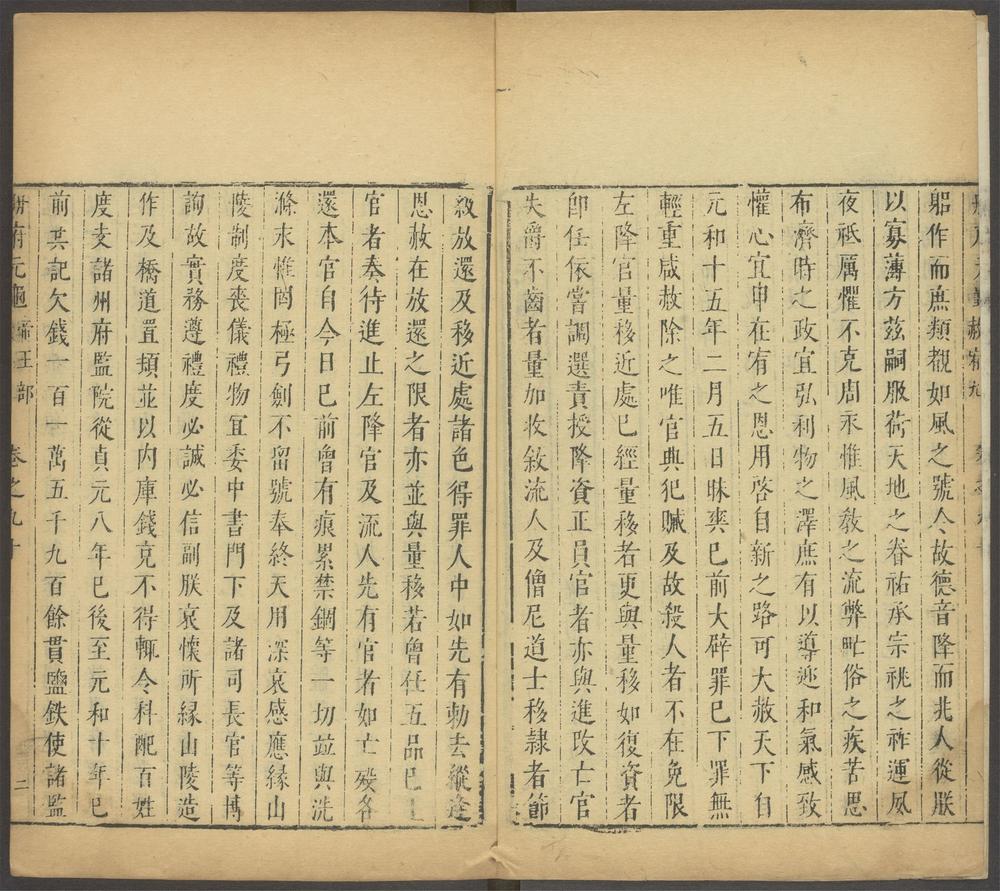 躬作而庶類覩如風之號令故德音降而兆人從朕
以寡薄方兹嗣服荷天地之眷祐承宗祧之祚運夙
夜祗厲懼不克周永惟風敎之流弊甿俗之疾苦思
布濟時之政宜弘利物之澤庶有以導迎和氣感致
懽心宜申在宥之恩用啓自新之路可大赦天下自
元和十五年二月五日昧爽巳前大辟罪巳下罪無
輕重咸赦除之唯官典犯贓及故殺人者不在免限
左降官量移近處巳經量移者更與量移如復資者
卽任依甞調選責授降資正員官者亦與進攺亡官
失爵不齒者量加收敘流人及僧尼道士移隷者節
級放還及移近處諸色得罪人中如先有勅云縱逢
恩赦在放還之限者亦並與量移若曾任五品巳上
官者奉待進止左降官及流人先有官者如亡殁各
還本官自今日巳前曾有痕累禁錮等一切竝與洗
滌末惟罔極弓劍不留號奉終天用深哀感應縁山
陵制度喪儀禮物宜委中書門下及諸司長官等博
詢故實務遵禮度必誠必信副朕哀懷所縁山陵造
作及橋道置頓並以内庫錢克不得輙令科配百姓
度支諸州府監院從貞元八年巳後至元和十年巳
前其記欠錢一百一萬五千九百餘貫鹽鉄使諸監
册府元龜 帝王部 卷之九十 二